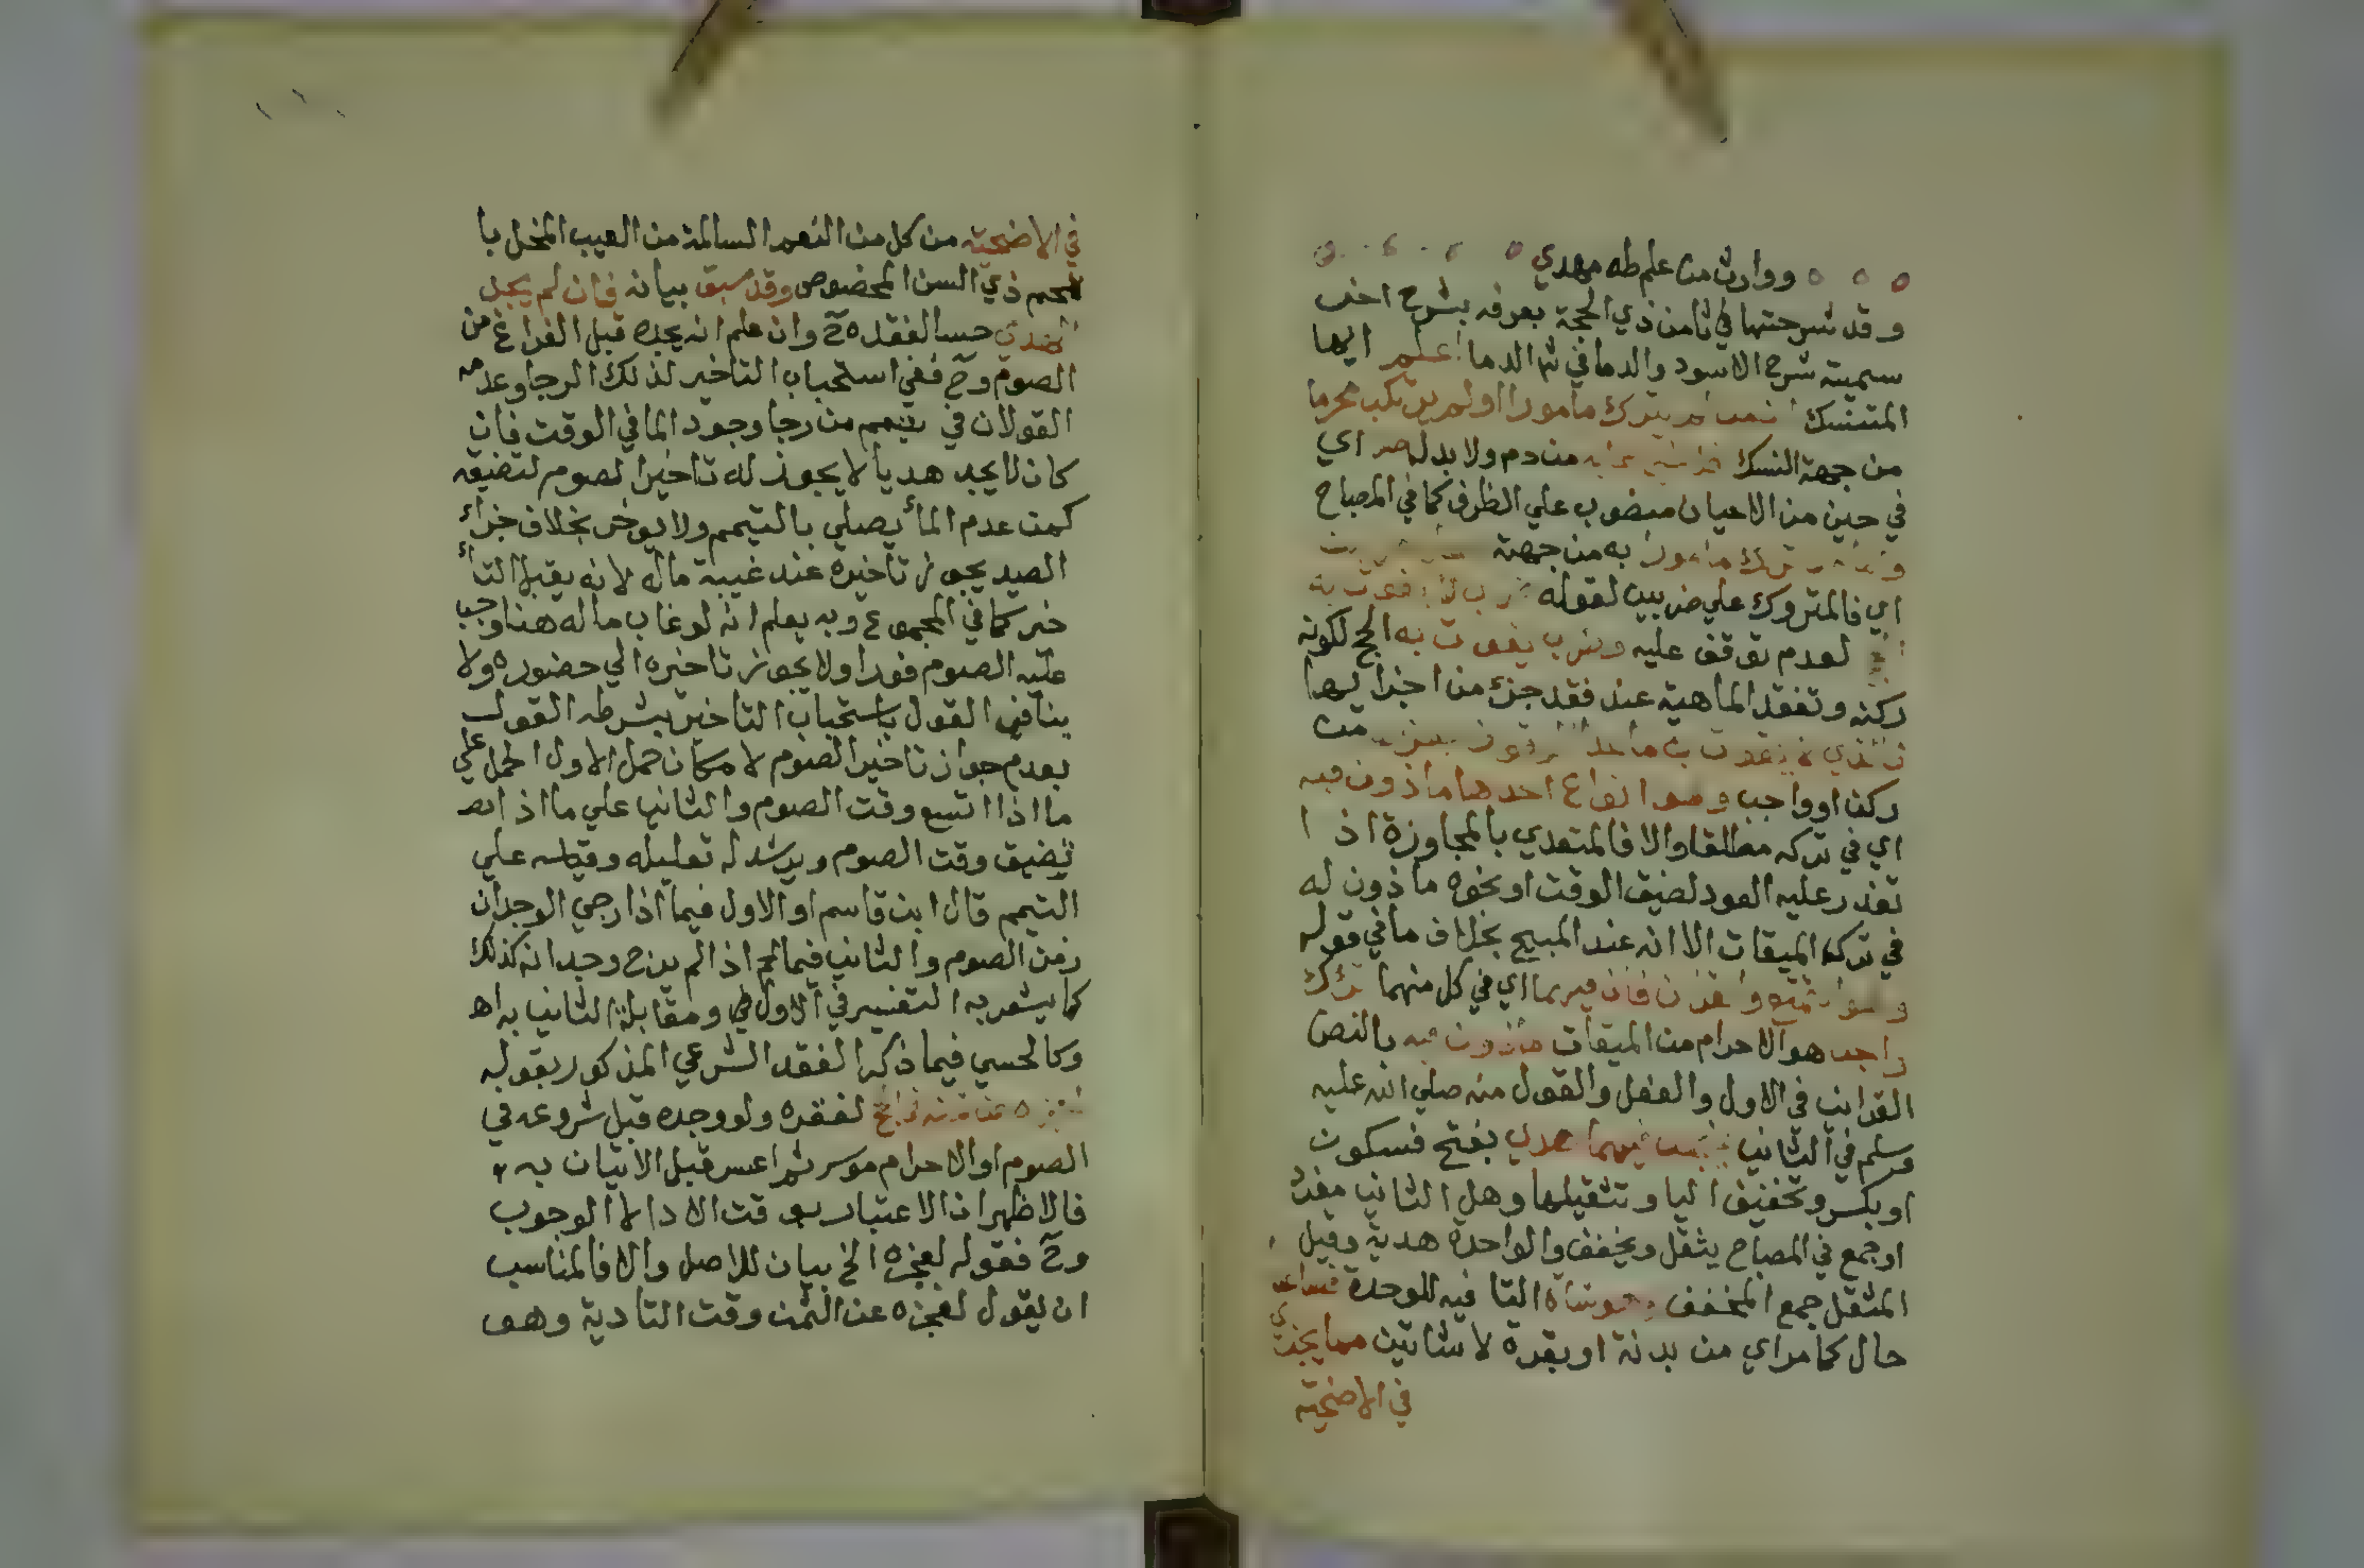 ووارث من علم طه مهدي
وقد شرحتها في ثامن ذي الحجة بعرفه بشرح اخر
سميته شرح الاسود والدما في ثم الدما اعلم ايها
المتنسك ان من لم يترك مامورا اولم يرتكب محرما
من جهة النسك من دم ولا بدله اي
في حين من الاحيان منصوب علي الظرف كما في المصباح
ترك مامورا به من جهة
اي فالمتروك علي ضربين لقوله
لعدم توقف عليه وضرب يفوت به الحج لكونه
ركنه وتفقد الماهية عند فقد جزء من اجزايها
من
ركن او واجب وهو انواع احدها ماذون فيه
اي في تركه مطلقا والا فالمتعدي بالمجاوزة اذا
تعذر عليه العود لضيق الوقت او نحوه ماذون له
في تركه الميقات الا انه عند المبيح بخلاف ما في قوله
وهو التمتع والقران فان فيهما اي في كل منهما ترك
واجب هو الاحرام من الميقات ماذون فيه بالنص
القراني في الاول والفعل والقول منه صلي الله عليه
وسلم في الثاني فيجب فيهما هدي بفتح فسكون
او بكسر وتخفيف اليا وتثقيلها وهل الثاني مفرد
او جمع في المصباح يثقل ويخفف والواحدة هدية وقيل
المثقل جمع المخفف وهو شاة التا فيه للوحدة فصاعد
حال كما مر اي من بدنة او بقرة لا شاتين مما يجزي
في الاضحية
في الاضحية من كل من النعم السالمة من العيب المخل با
للحم ذي السن المخصوص وقد سبق بيانه فان لم يجد
الهدي حسا لفقده ح وان علم انه يجده قبل الفراغ من
الصوم وح ففي استحباب التاخير لذلك الرجا وعدمه
القولان في تيمم من رجا وجود الما في الوقت فان
كان لا يجد هديا لا يجوز له تاخير الصوم لتضيقه
كمن عدم الماء يصلي بالتيمم ولا يوخر بخلاف جزاء
الصيد يجوز تاخيره عند غيبة ماله لانه يقبل التا
خير كما في المجموع وبه يعلم انه لو غاب ماله هنا وجب
عليه الصوم فورا ولا يجوز تاخيره الي حضوره ولا
ينافي القول باستحباب التاخير بشرطه القول
بعدم جواز تاخير الصوم لامكان حمل الاول الحمل علي
ما اذا اتسع وقت الصوم والثاني علي ما اذا
تضيق وقت الصوم ويرشد له تعليله وقياسه علي
التيمم قال ابن قاسم او الاول فيما اذا رجي الوجدان
زمن الصوم والثاني فيما اذا لم يرج وجدانه كذلك
كما يشعر به التقييد في الاول ومقابلة الثاني به اه
وكالحسي فيما ذكر الفقد الشرعي المذكور بقوله
لعجزه عن ثمنه لفقده ولو وجده قبل شروعه في
الصوم او الاحرام موسر ثم اعسر قبل الاتيان به
فالاظهر ان الاعتبار بوقت الادا لا الوجوب
وح فقوله لعجزه الخ بيان للاصل والا فالمناسب
ان يقول لعجزه عن الثمن وقت التادية وهو